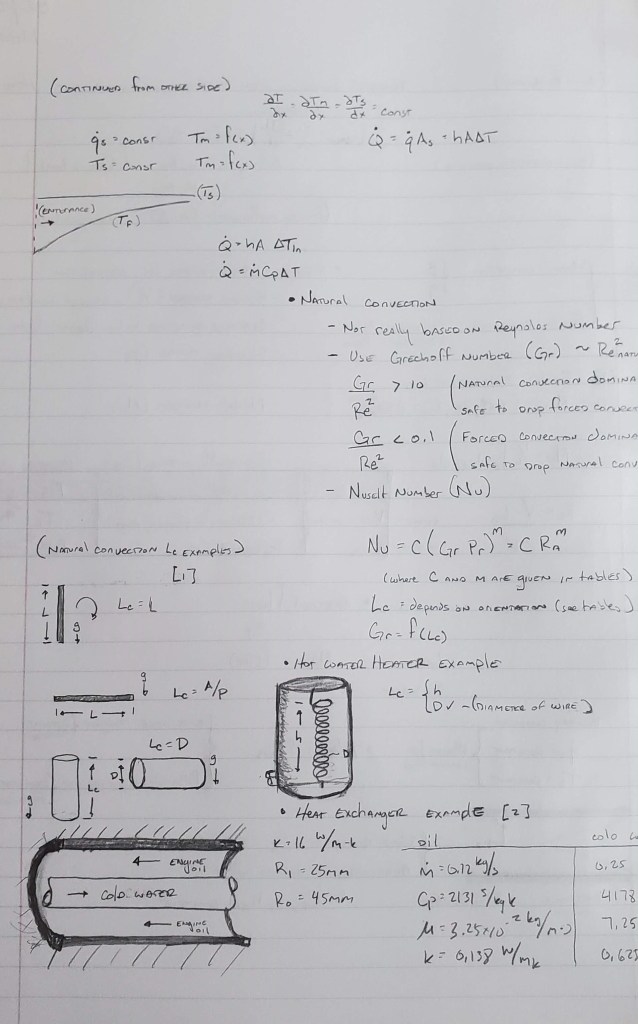 (CONTINUED from OTHER SIDE)
∂T/∂x = ∂Tm/∂x = ∂Ts/∂x = const
q̇s = const Tm = f(x)
Q̇ = q̇ As = hAΔT
Ts = const Tm = f(x)
(Ts)
(ENTURANCE)
(TF)
Q̇ = hA ΔTln
Q̇ = ṁCpΔT
• NATURAL CONVECTION
- Not really BASED ON Reynolds NUMBER
- USE Grechoff NUMBER (Gr) ~ Re²
Gr/Re² > 10 (NATURAL CONVECTION DOMINA
safe to DROP forced convect
Gr/Re² < 0.1 (FORCED CONVECTION DOMINA
safe TO DROP NATURAL conv
- Nuselt Number (Nu)
(Natural convection Lc Examples)
Nu = C(Gr Pr)^m = C RA^m
[1]
(where C AND M ARE given in tables)
L Lc = L
g
Lc = depends on orientation (see tables)
Gr = f(Lc)
• HOT WATER HEATER EXAMPLE
g
Lc = A/P
L
Lc = { h
D ✓ - (DIAMETER OF WIRE)
h
D
Lc = D
Lc
D
g
g
• HEAT EXCHANGER EXAMPLE [2]
k = 16 W/m-k
oil
cold w
← ENGINE OIL
R1 = 25mm
ṁ = 0.12 kg/s
0.25
→ COLD WATER
Ro = 45mm
Cp = 2131 J/kgk
4178
← ENGINE OIL
μ = 3.25×10^-2 kg/m·s
7.25
k = 0.138 W/mk
0.625